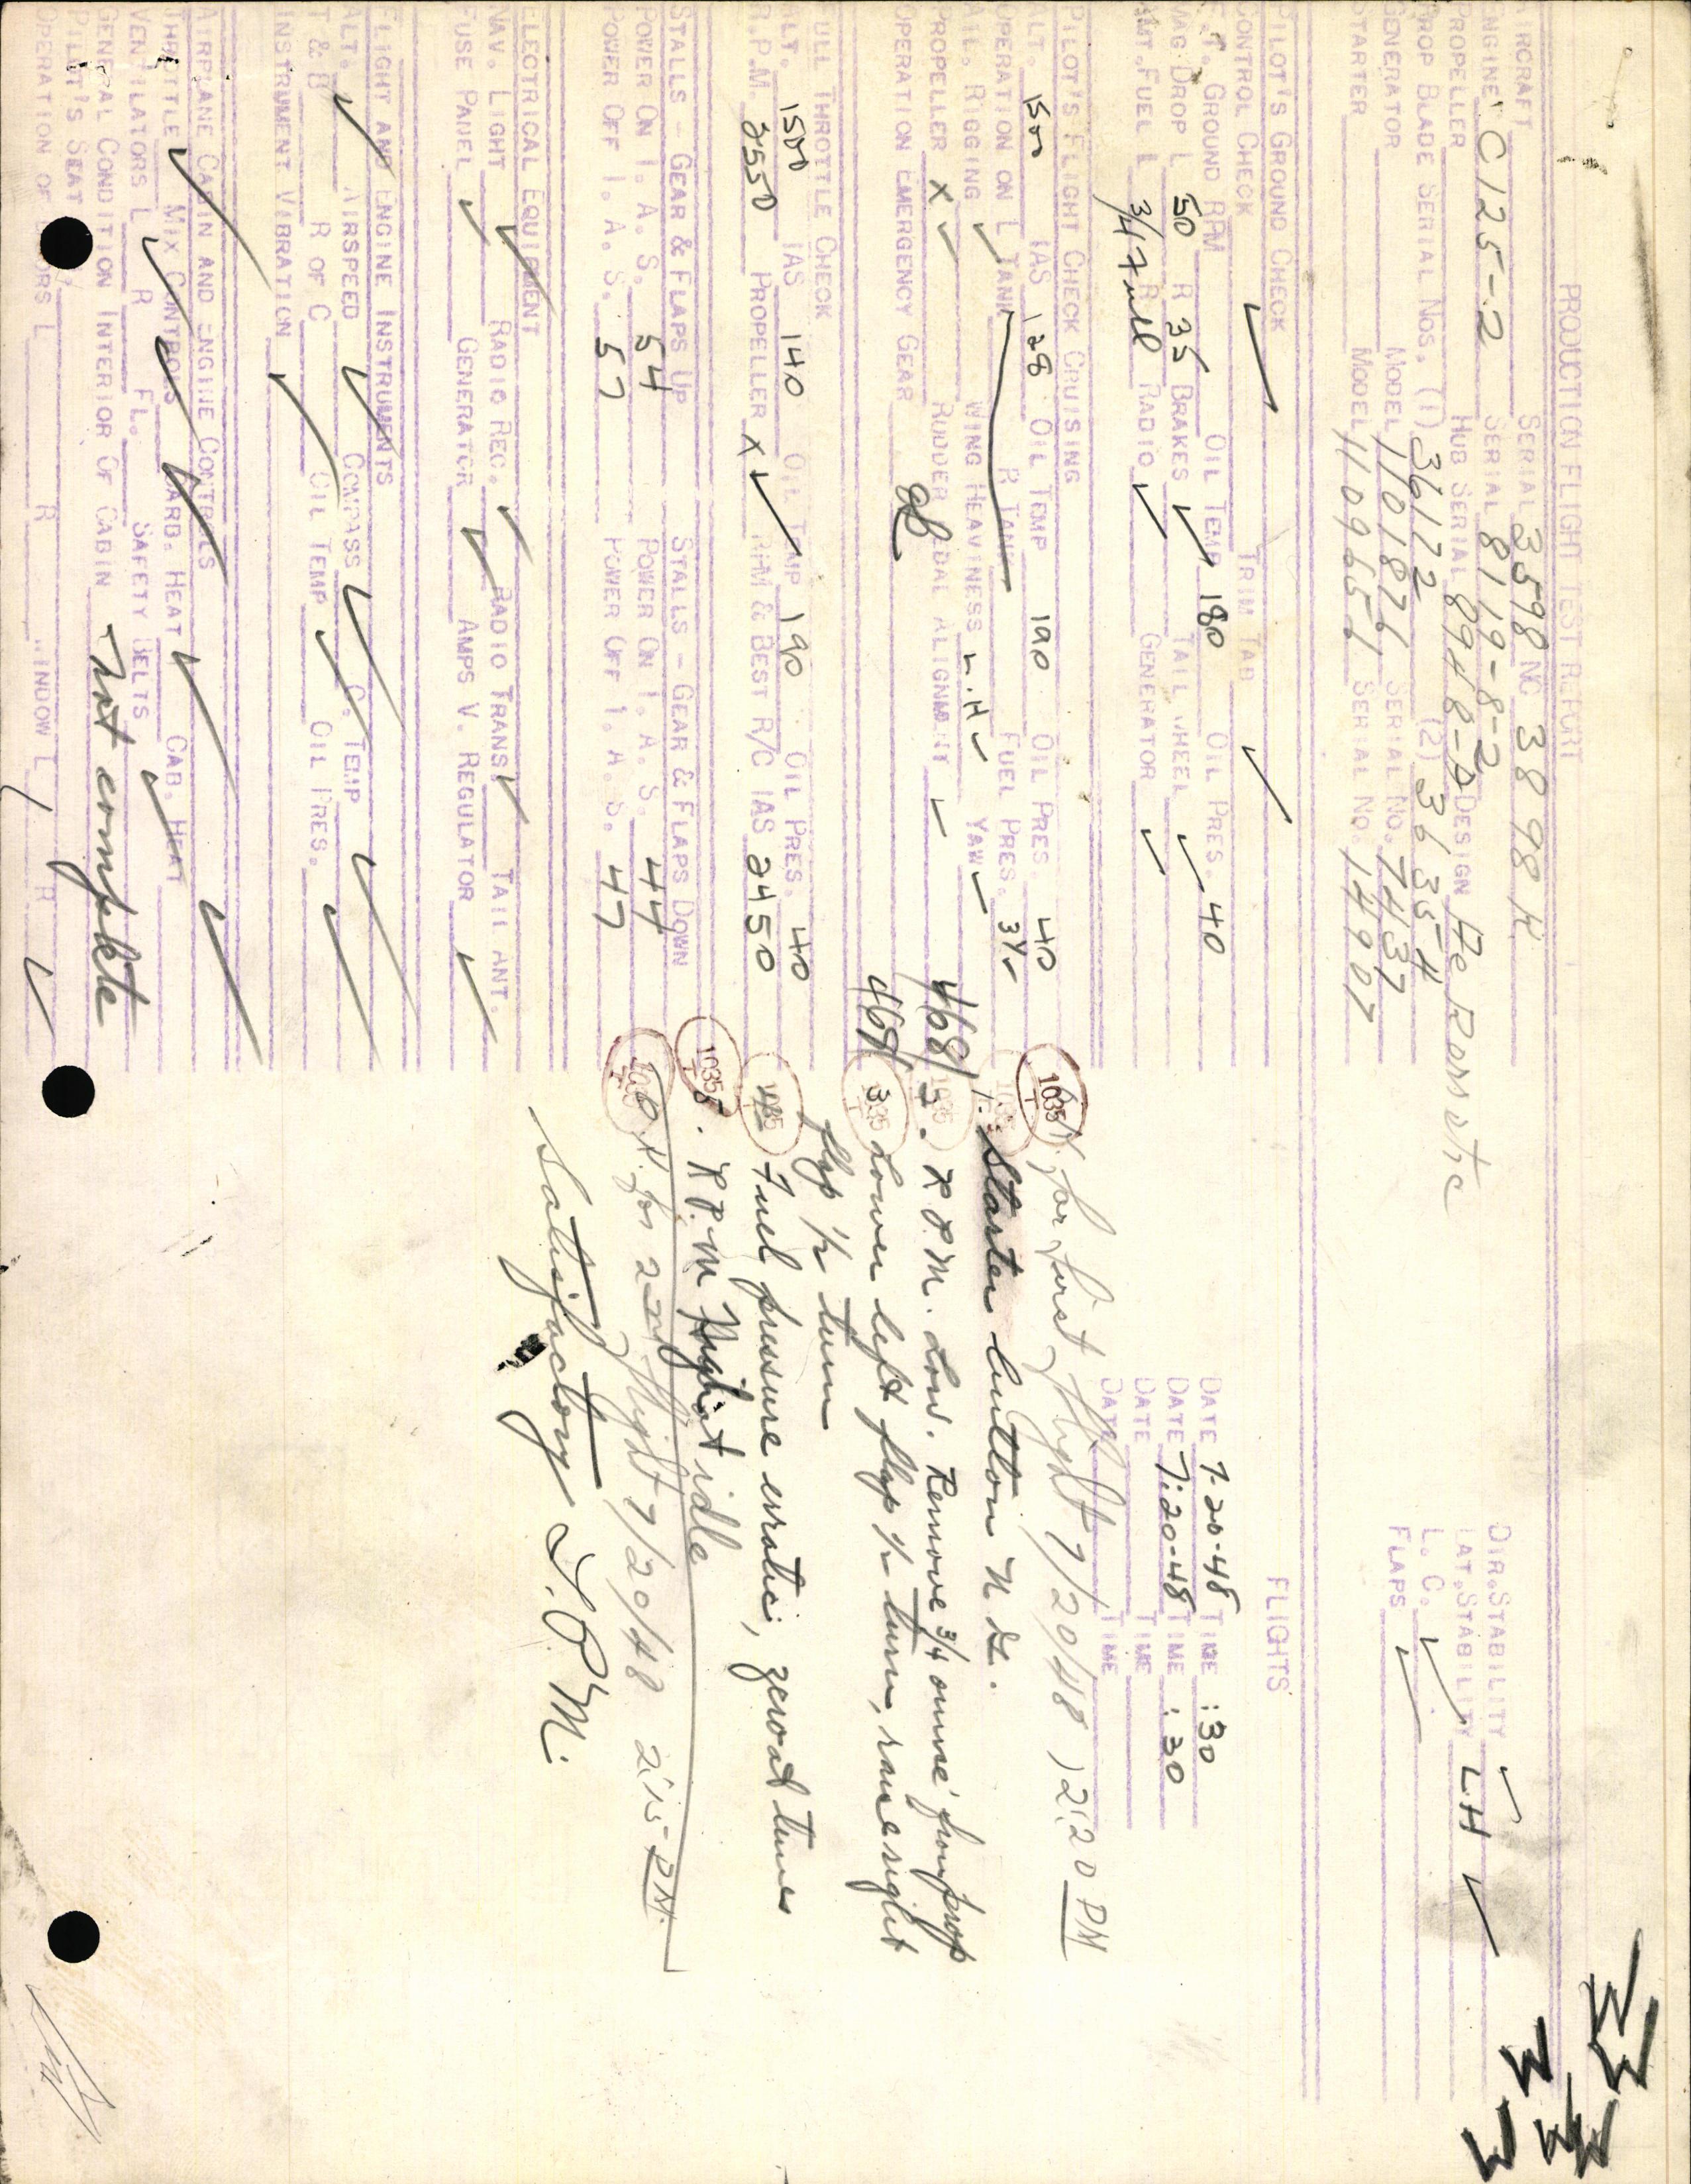 PRODUCTION FLIGHT TEST REPORT
AIRCRAFT SERIAL 3598 NC 3898 K
ENGINE C125-2 SERIAL 8119-8-2 DIR.STABILITY ✓
PROPELLER HUB SERIAL DESIGN LAT.STABILITY LH ✓
PROP BLADE SERIAL NOS. (1) 36172 (2) L. C. ✓
GENERATOR MODEL 1101876 SERIAL NO. 7437 FLAPS ✓
STARTER MODEL 1109656 SERIAL NO. 14907
PILOT'S GROUND CHECK ✓ TRIM TAB ✓ FLIGHTS
CONTROL CHECK
F.T. GROUND RPM OIL TEMP 180 OIL PRES. 40 DATE 7-20-48 TIME :30
MAG DROP L 50 R 35 BRAKES ✓ TAIL WHEEL ✓ DATE 7-20-48 TIME :30
AMT.FUEL L 3/4 R Full RADIO ✓ GENERATOR ✓ DATE TIME
DATE TIME
PILOT'S FLIGHT CHECK CRUISING
O.K. for first flight 7/20/48 12:20 PM
ALT. 1500 IAS 128 OIL TEMP 190 OIL PRES. 40
OPERATION ON L TANK ✓ R TANK FUEL PRES. 3½ ✓
1. Starter button N.G.
AIL. RIGGING ✓ WING HEAVINESS L.H ✓ YAW ✓
PROPELLER X ✓ RUDDER PEDAL ALIGNMENT ✓
468/ 2. R.P.M. Low. Remove 3/4 ounce from prop
OPERATION EMERGENCY GEAR
468/ 3. Lower left flap ½ turn, raise right
flap ½ turn
FULL THROTTLE CHECK
ALT. 1500 IAS 140 OIL TEMP 190 OIL PRES. 40
R.P.M. 2550 PROPELLER X ✓ RPM & BEST R/C IAS 2450
4. Fuel pressure erratic, zero at times
5. R.P.M. High at idle
STALLS - GEAR & FLAPS UP STALLS - GEAR & FLAPS DOWN
POWER ON I. A. S. 54 POWER ON I. A. S. 44
O.K. for 2nd flight 7/20/48 2:15 PM.
POWER OFF I. A. S. 57 POWER OFF I. A. S. 47
Satisfactory
ELECTRICAL EQUIPMENT
NAV. LIGHT ✓ RADIO REC. ✓ RADIO TRANS ✓ TAIL ANT.
FUSE PANEL ✓ GENERATOR ✓ AMPS V. REGULATOR ✓
FLIGHT AND ENGINE INSTRUMENTS
ALT. ✓ AIRSPEED ✓ COMPASS ✓ C. TEMP ✓
T & B R OF C OIL TEMP ✓ OIL PRES. ✓
INSTRUMENT VIBRATION ✓
AIRPLANE CABIN AND ENGINE CONTROLS
THROTTLE ✓ MIX CONTROLS ✓ CARB. HEAT ✓ CAB. HEAT ✓
VENTILATORS L ✓ R ✓ FL. ✓ SAFETY BELTS ✓
GENERAL CONDITION INTERIOR OF CABIN Not complete
PILOT'S SEAT
OPERATION OF DOORS L R WINDOW L ✓ R ✓